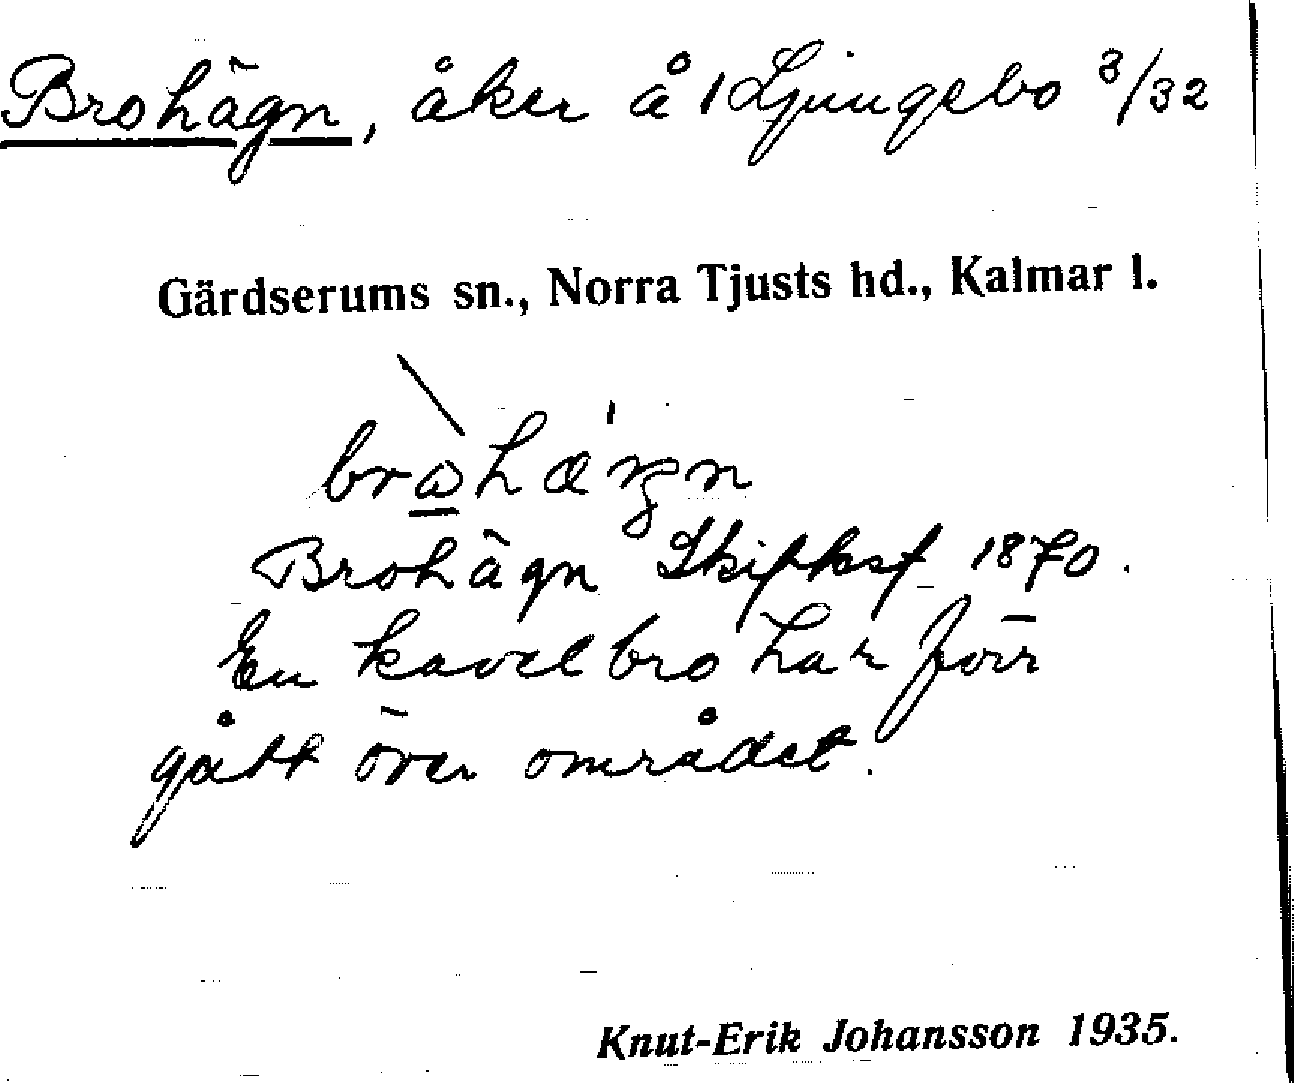 Brohägn, åker å 1 Ljungebo 3/32
Gärdserums sn., Norra Tjusts hd., Kalmar l.
Brohägn Skifksf 1870.
En kavelbro har förr
gått över området.
Knut-Erik Johansson 1935.